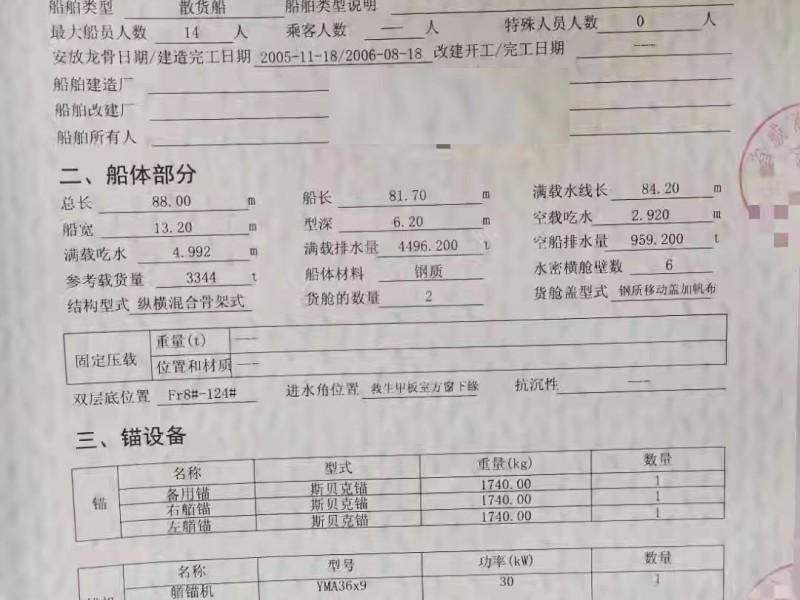 船舶类型 散货船 船舶类型说明
最大船员人数 14 人 乘客人数 --- 人 特殊人员人数 0 人
安放龙骨日期/建造完工日期 2005-11-18/2006-08-18 改建开工/完工日期 ---
船舶建造厂
船舶改建厂
船舶所有人
二、船体部分
总长 88.00 m 船长 81.70 m 满载水线长 84.20 m
船宽 13.20 m 型深 6.20 m 空载吃水 2.920 m
满载吃水 4.992 m 满载排水量 4496.200 t 空船排水量 959.200 t
参考载货量 3344 t 船体材料 钢质 水密横舱壁数 6
结构型式 纵横混合骨架式 货舱的数量 2 货舱盖型式 钢质移动盖加帆布
固定压载 重量(t) ---
位置和材质 ---
双层底位置 Fr8#-124# 进水角位置 救生甲板室方窗下缘 抗沉性 ---
三、锚设备
锚 名称 型式 重量(kg) 数量
备用锚 斯贝克锚 1740.00 1
右艏锚 斯贝克锚 1740.00 1
左艏锚 斯贝克锚 1740.00 1
名称 型号 功率(kW) 数量
艏锚机 YMA36x9 30 1